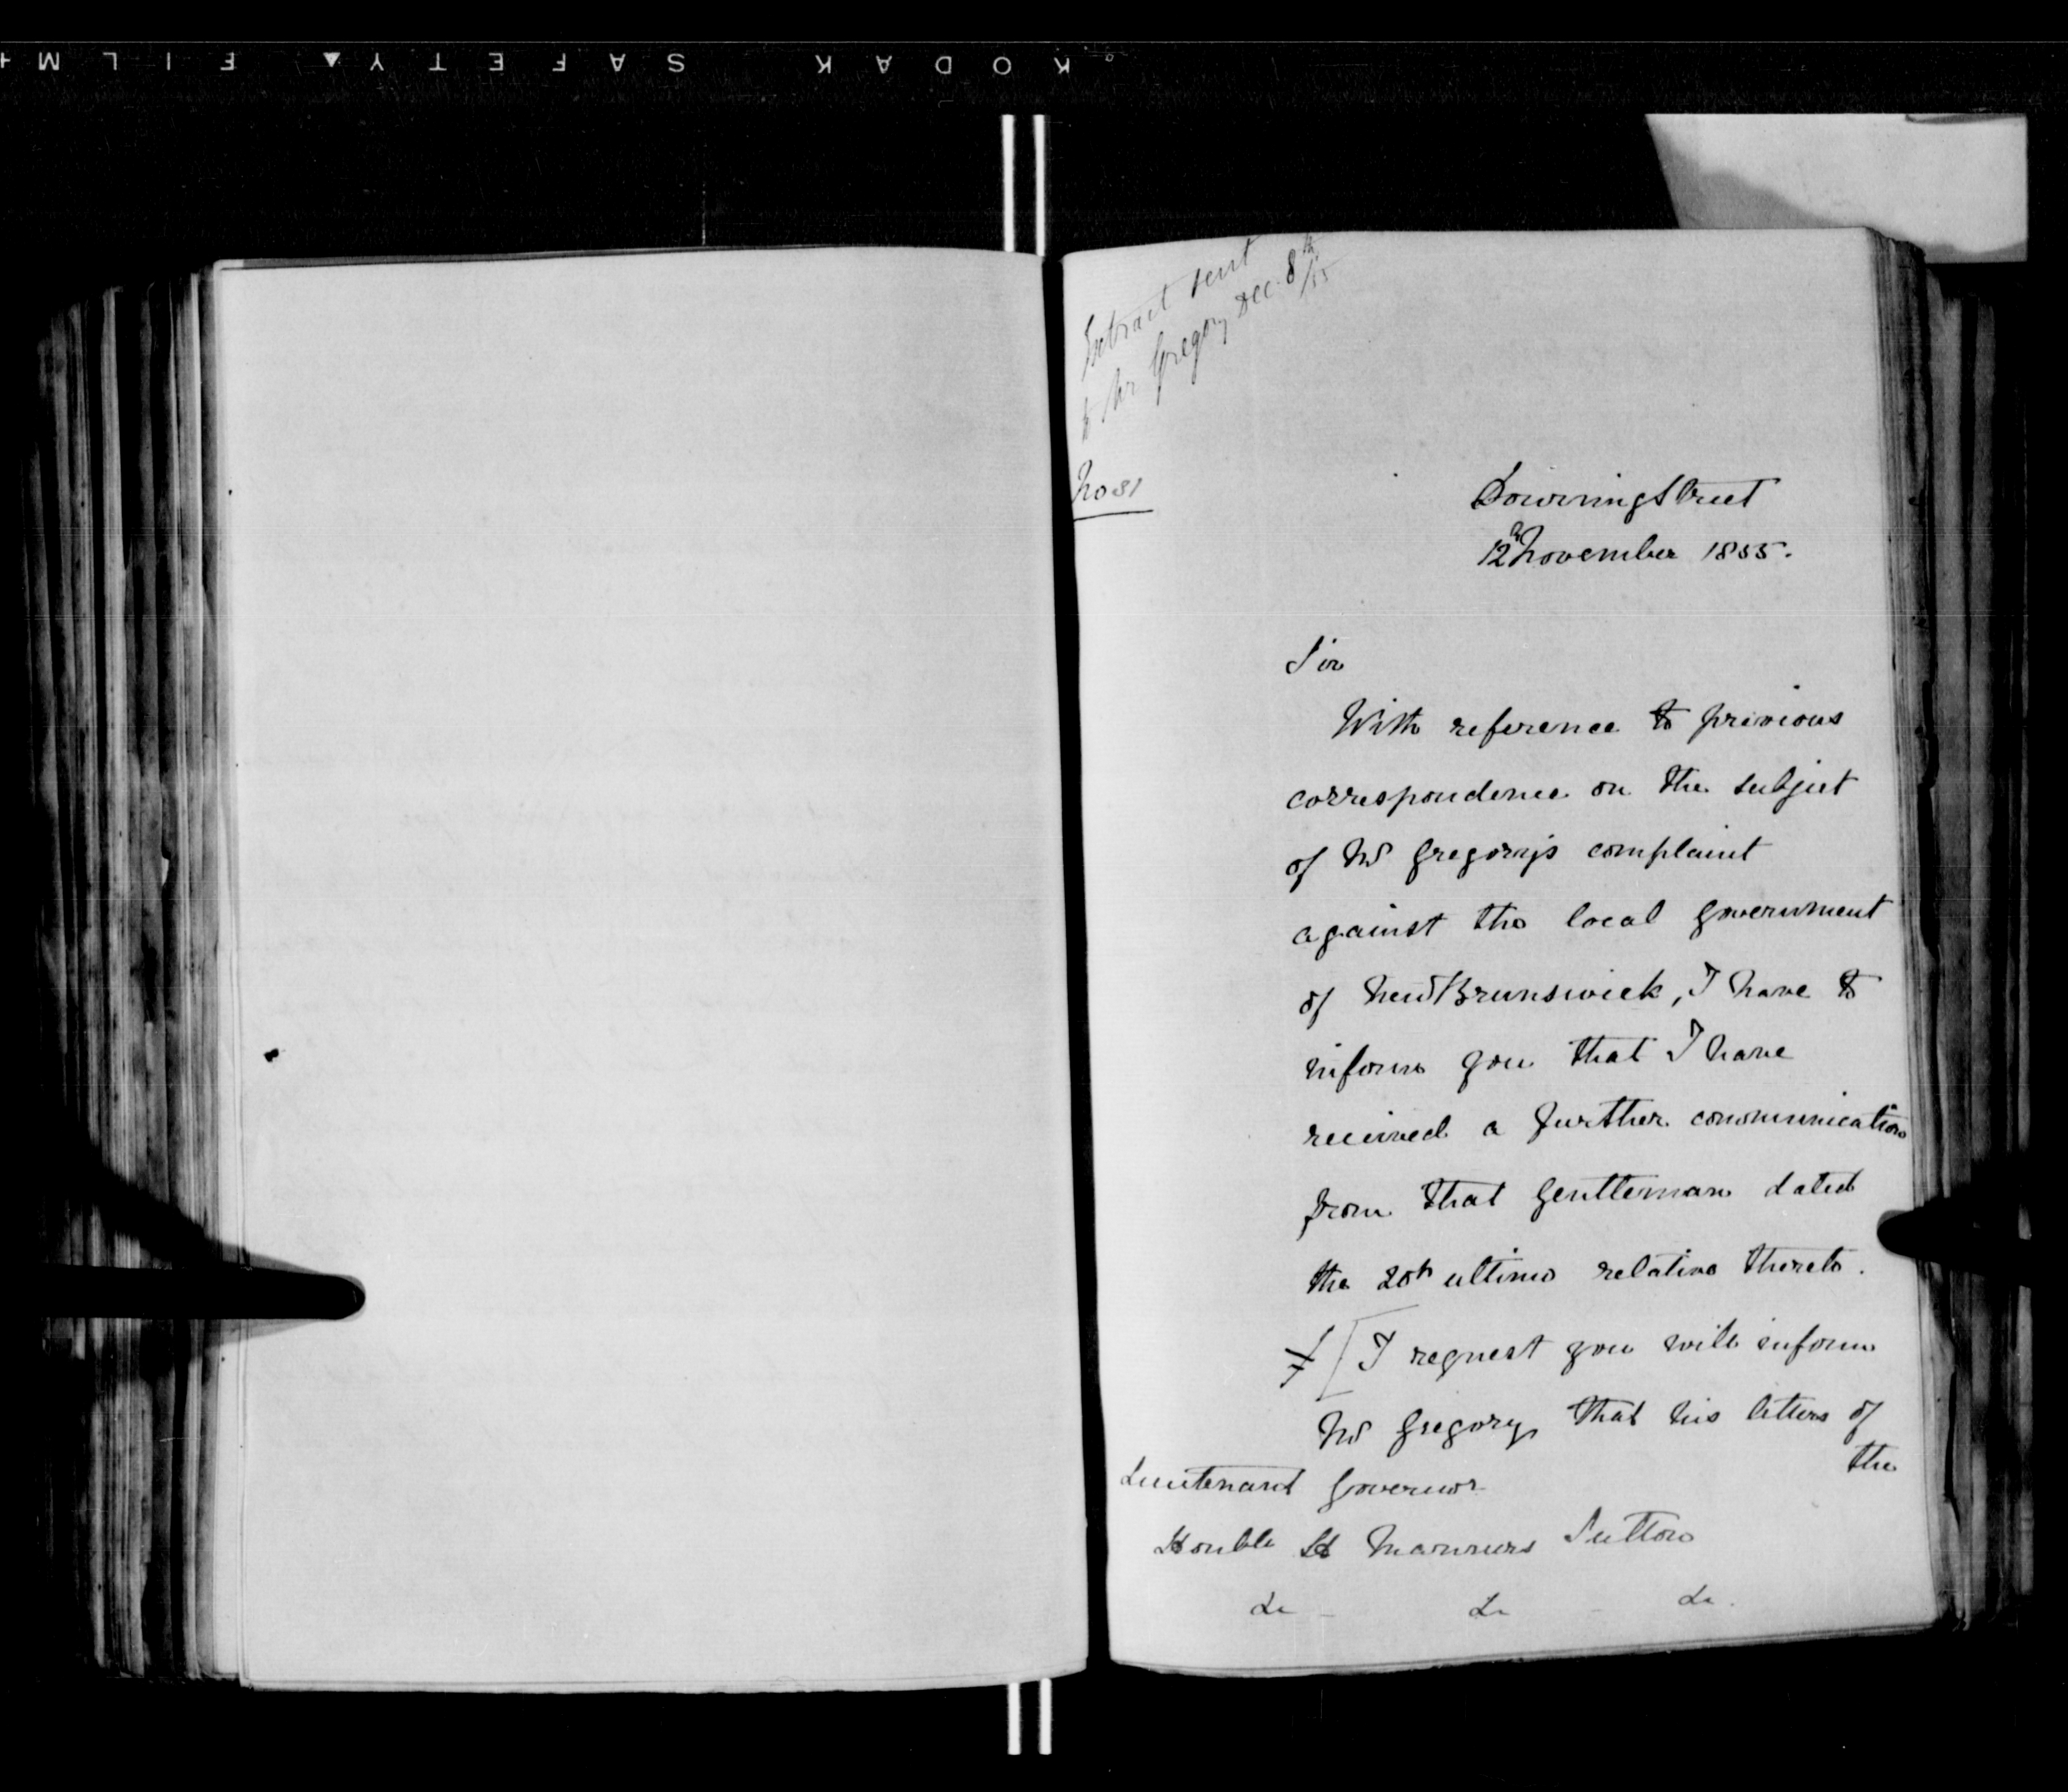 KODAK SAFETY FILM
Extract sent
to Mr Gregory Dec. 8th/55
No 31
Downing Street
12th November 1855.
Sir
With reference to previous
correspondence on the subject
of Mr Gregory's complaint
against the local government
of New Brunswick, I have to
inform you that I have
received a further communication
from that Gentleman dated
the 20th ultimo relative thereto.
[I request you will inform
Mr Gregory, that his letters of
the
Lieutenant Governor
Honble H Manners Sutton
&c &c &c.